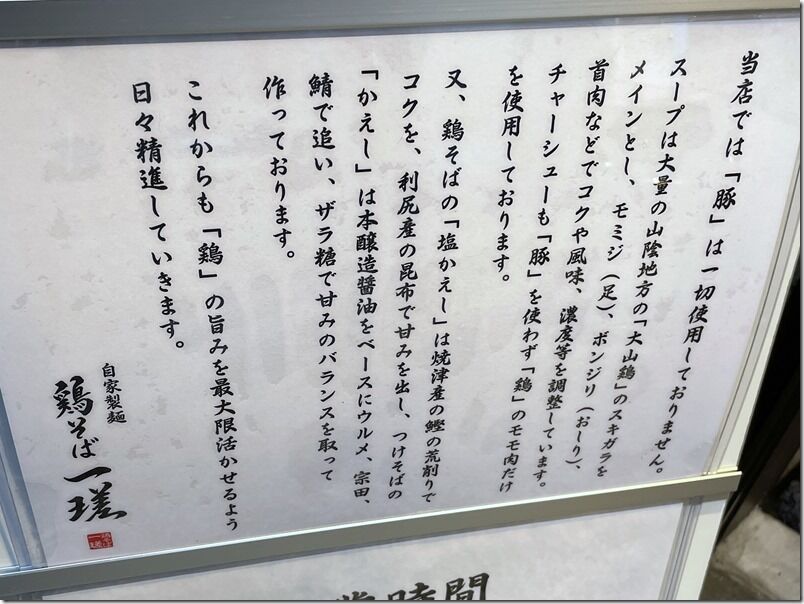 当店では「豚」は一切使用しておりません。
スープは大量の山陰地方の「大山鶏」のスキガラを
メインとし、モミジ（足）、ボンジリ（おしり）、
首肉などでコクや風味、濃度等を調整しています。
チャーシューも「豚」を使わず「鶏」のモモ肉だけ
を使用しております。
又、鶏そばの「塩かえし」は焼津産の鰹の荒削りで
コクを、利尻産の昆布で甘みを出し、つけそばの
「かえし」は本醸造醤油をベースにウルメ、宗田、
鯖で追い、ザラ糖で甘みのバランスを取って
作っております。
これからも「鶏」の旨みを最大限活かせるよう
日々精進していきます。
自家製麺
鶏そば一瑳
営時間